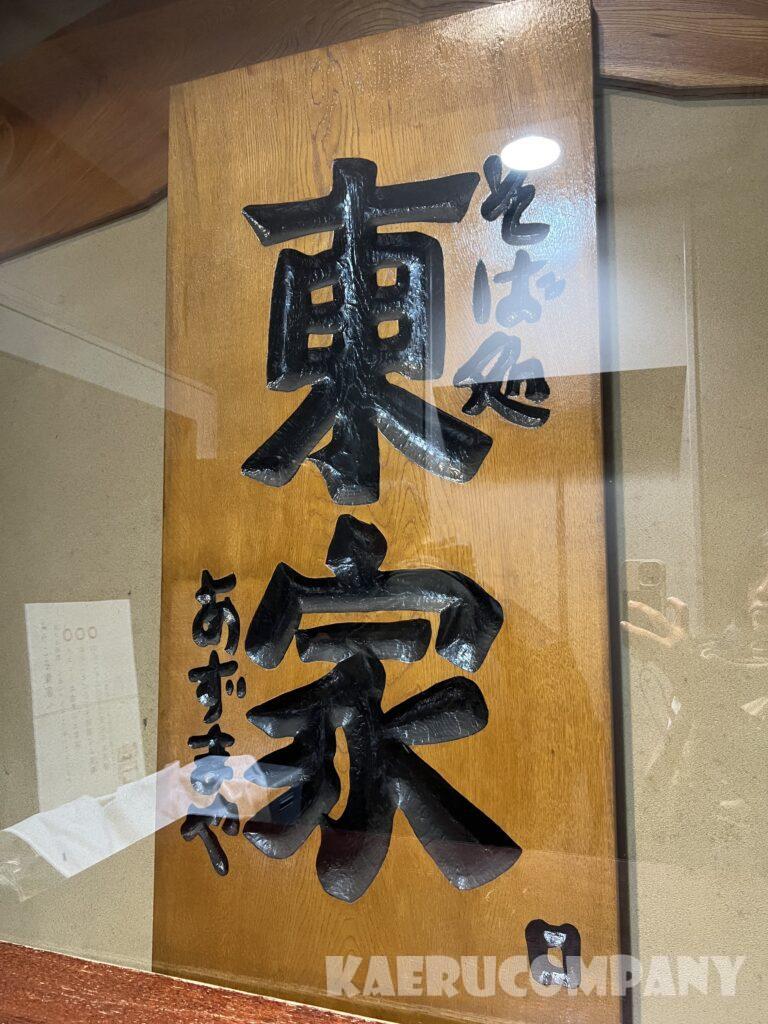 そば処
東家
あずまや
KAERUCOMPANY